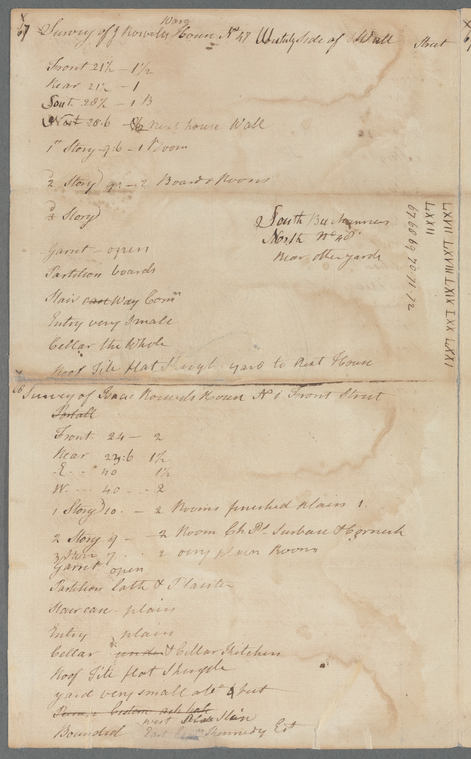 67 Survey of J Roosvelts House No 47 Westerly side of Wall Street
Front 21½ - 1½
Rear 21½ - 1
South 28½ - 1 B
28:6 - next house Wall
1st Story 9:6 - 1 Room
2d Story - 2 Boards Rooms
3d Story
South
North No 48
Rear, other yards
Garret - open
Partition boards
Stair Way Comn
Entry very Small
Cellar the Whole
Roof Tile flat Shingle yard to Next House
LXVII LXVIII LXIX LXX LXXI
LXXII
67 68 69 70 71 72
Survey of Isaac Roosvelts House No 1 Front Street
Front 24 - 2
Rear 23:6 1½
E. - 40 1½
W. - 40 - 2
1 Story 10 - 2 Rooms finished plain 1.
2 Story 9 - 2 Room Ch Ps Surbase & Cornish
3 Story 9 - 2 very plain Rooms
Garret open
Partition lath & Plaister
Stair case - plain
Entry plain
Cellar & Cellar Kitchen
Roof Tile flat Shingle
yard very small abt 4 feet
west
Bounded East Kennedy Est